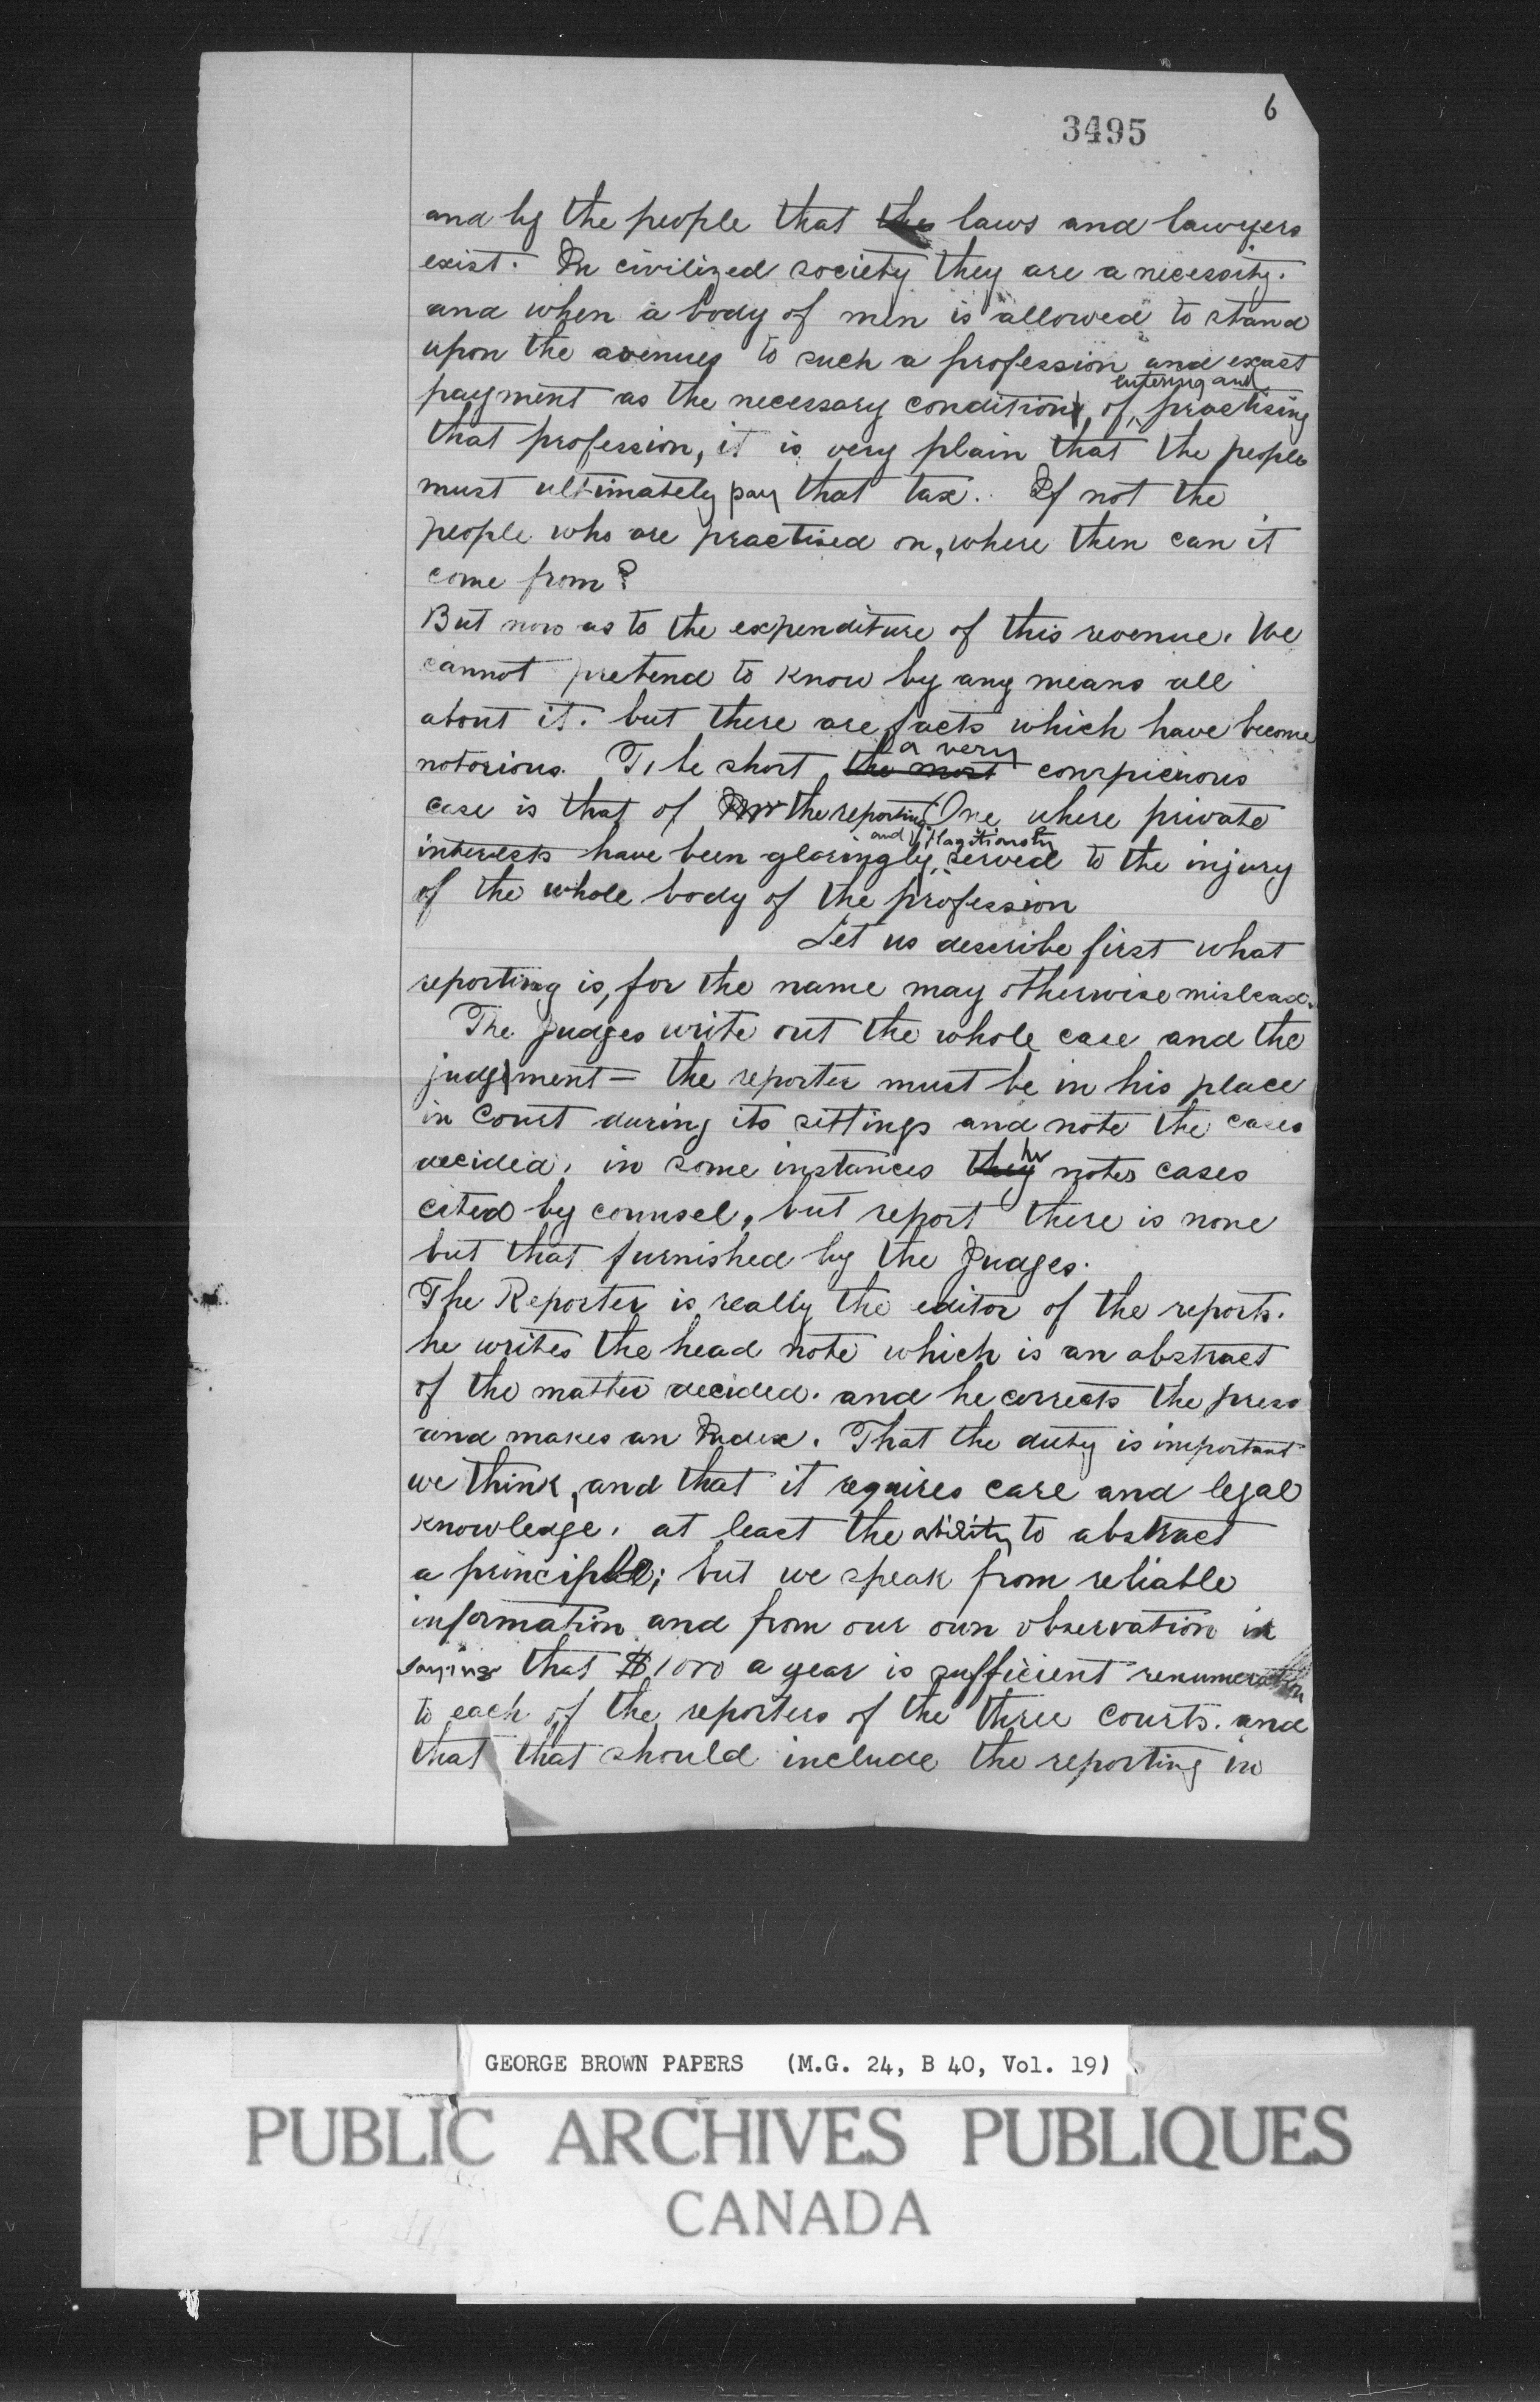 6
3495
and by the people that the laws and lawyers
exist. In civilized society they are a necessity.
and when a body of men is allowed to stand
upon the avenues to such a profession and exact
entering and
payment as the necessary condition of practising
that profession, it is very plain that the people
must ultimately pay that tax. If not the
people who are practised on, where then can it
come from?
But now as to the expenditure of this revenue. We
cannot pretend to know by any means all
about it. but there are facts which have become
a very
notorious. To be short the most conspicuous
case is that of the reporting One where private
and flagitiously
interests have been glaringly served to the injury
of the whole body of the profession
Let us describe first what
reporting is, for the name may otherwise mislead.
The Judges write out the whole case and the
judgment — the reporter must be in his place
in Court during its sittings and note the cases
he
decided. in some instances they notes cases
cited by counsel, but report there is none
but that furnished by the Judges.
The Reporter is really the editor of the reports.
he writes the head note which is an abstract
of the matter decided. and he corrects the press
and makes an Index. That the duty is important
we think, and that it requires care and legal
knowledge. at least the ability to abstract
a principle; but we speak from reliable
information and from our own observation in
saying that $1000 a year is sufficient renumeration
to each of the reporters of the three courts. and
that that should include the reporting in
GEORGE BROWN PAPERS (M.G. 24, B 40, Vol. 19)
PUBLIC ARCHIVES PUBLIQUES
CANADA